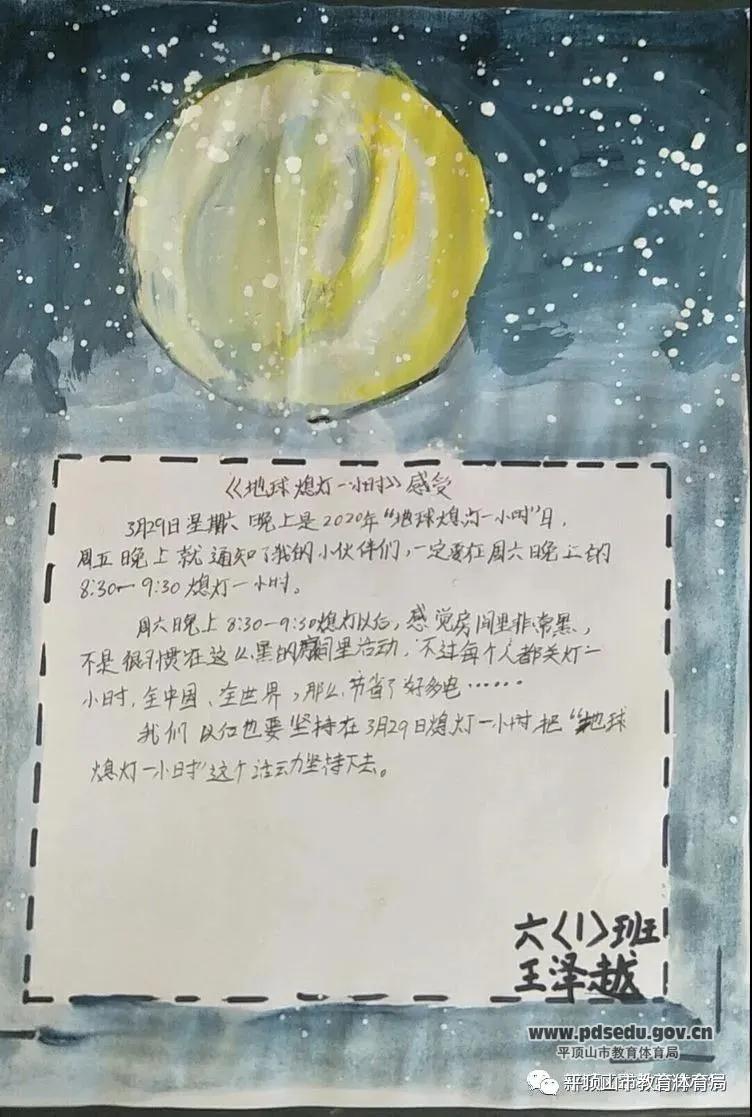 《地球熄灯一小时》感受
3月29日星期六晚上是2020年“地球熄灯一小时”日，
周五晚上就通知了我的小伙伴们，一定要在周六晚上的
8:30—9:30熄灯一小时。
周六晚上8:30—9:30熄灯以后，感觉房间里非常黑，
不是很习惯在这么黑的房间里活动，不过每个人都关灯一
小时，全中国、全世界，那么节省了好多电……
我们以后也要坚持在3月29日熄灯一小时把“地球
熄灯一小时”这个活动坚持下去。
六〈1〉班
王泽越
www.pdsedu.gov.cn
平顶山市教育体育局
平顶山市教育体育局